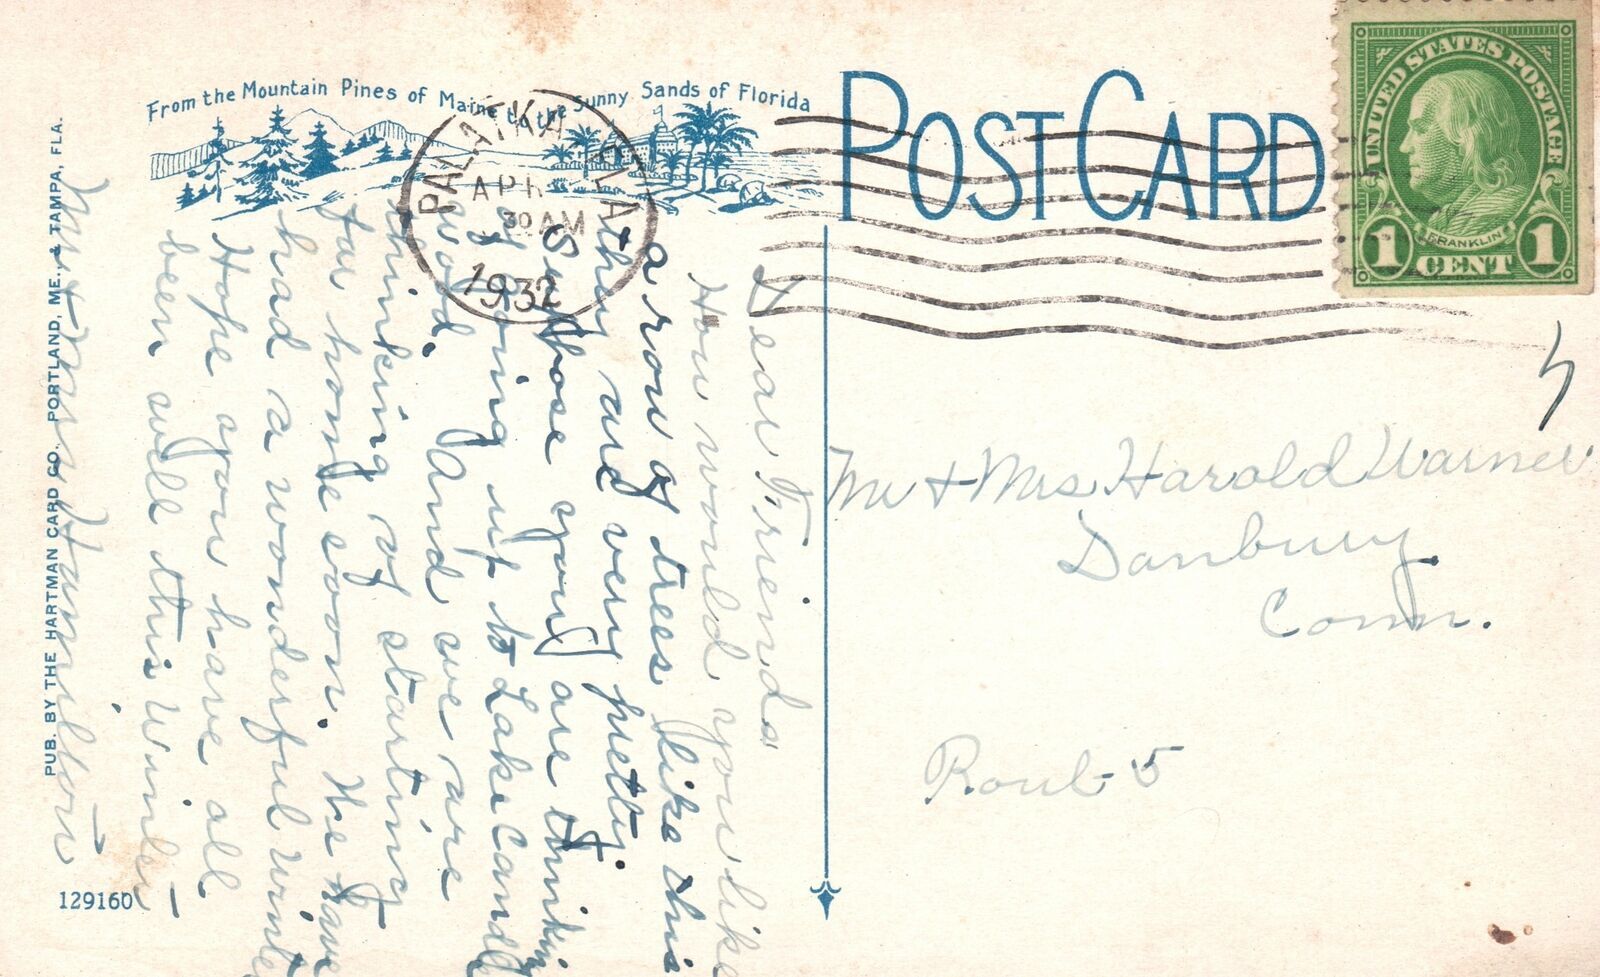 From the Mountain Pines of Maine to the Sunny Sands of Florida
POST CARD
PALATKA
FLA
APR
30 AM
1932
UNITED STATES POSTAGE
FRANKLIN
1 CENT 1
Dear Friends
How would you like
a row of trees like this
they are very pretty.
Suphose you are thinking
of going up to Lake Candle
wood. And we are
thinking of starting
for home soon. We have
had a wonderful winter
Hope you have all
been well this Winter -
Mr + Mrs Hamilton
Mr + Mrs Harold Warner
Danbury
Conn.
Rout 5
PUB. BY THE HARTMAN CARD CO. PORTLAND, ME., & TAMPA, FLA.
129160